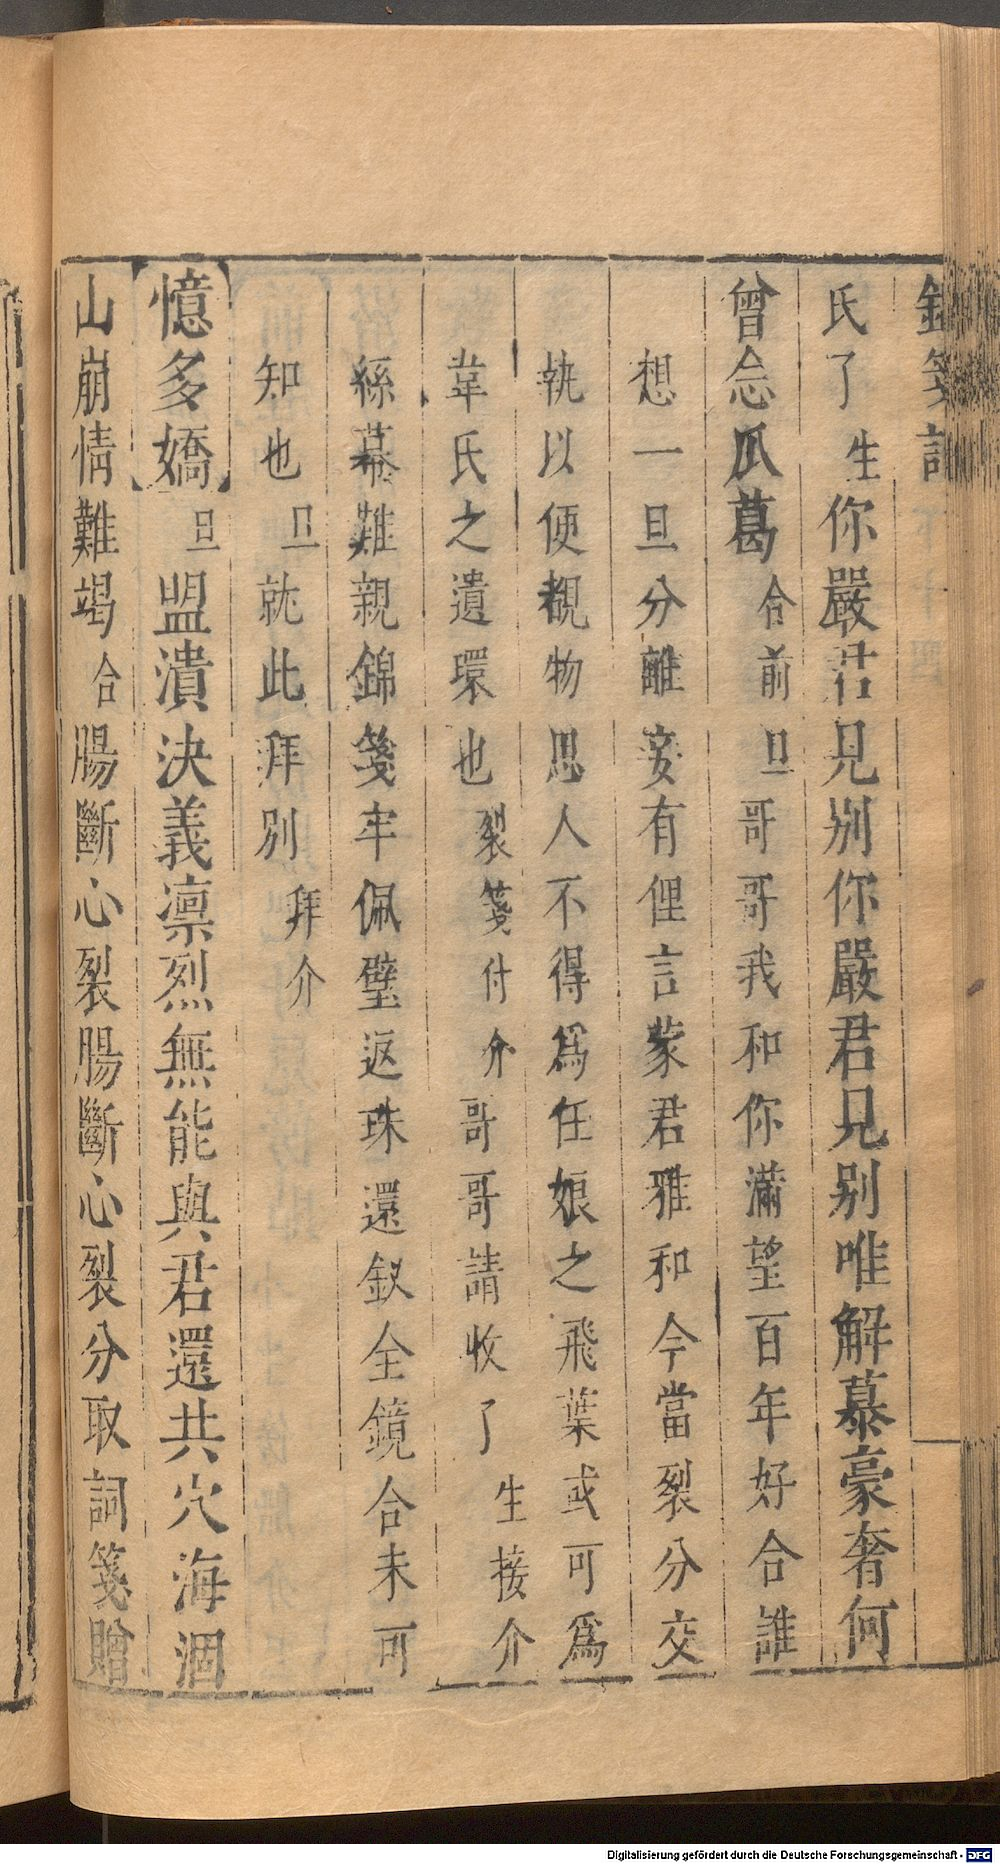 錦箋記
氏了生你嚴君見别你嚴君見别唯解慕豪奢何
曾念瓜葛合前旦哥哥我和你滿望百年好合誰
想一旦分離妾有俚言蒙君雅和今當裂分交
執以便覩物思人不得爲任娘之飛葉或可爲
韋氏之遺環也裂箋付介哥哥請收了生接介
絲幕難親錦箋牢佩璧返珠還釵全鏡合未可
知也旦就此拜别拜介
憶多嬌旦盟潰決義凛烈無能與君還共穴海涸
山崩情難竭合腸斷心裂腸斷心裂分取詞箋贈
Digitalisierung gefördert durch die Deutsche Forschungsgemeinschaft - DFG